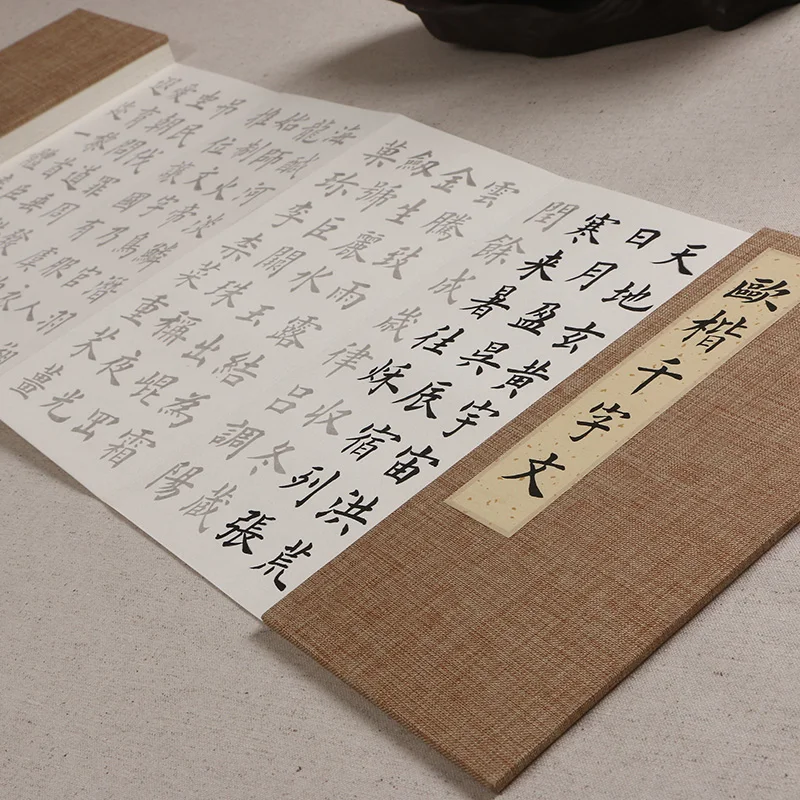 歐楷千字文
天地玄黃宇宙洪荒
日月盈昃辰宿列張
寒来暑往秌收冬藏
閏餘成歲律呂調陽
雲騰致雨露結為霜
金生麗水玉出崐罡
劒號巨闕珠稱夜光
菓珍李柰菜重芥薑
海鹹河淡鱗潛羽翔
龍師火帝鳥官人
始制文字乃服衣
推位讓國有虞
吊民伐罪周發
坐朝問道垂
愛育黎首臣
遐迩一體